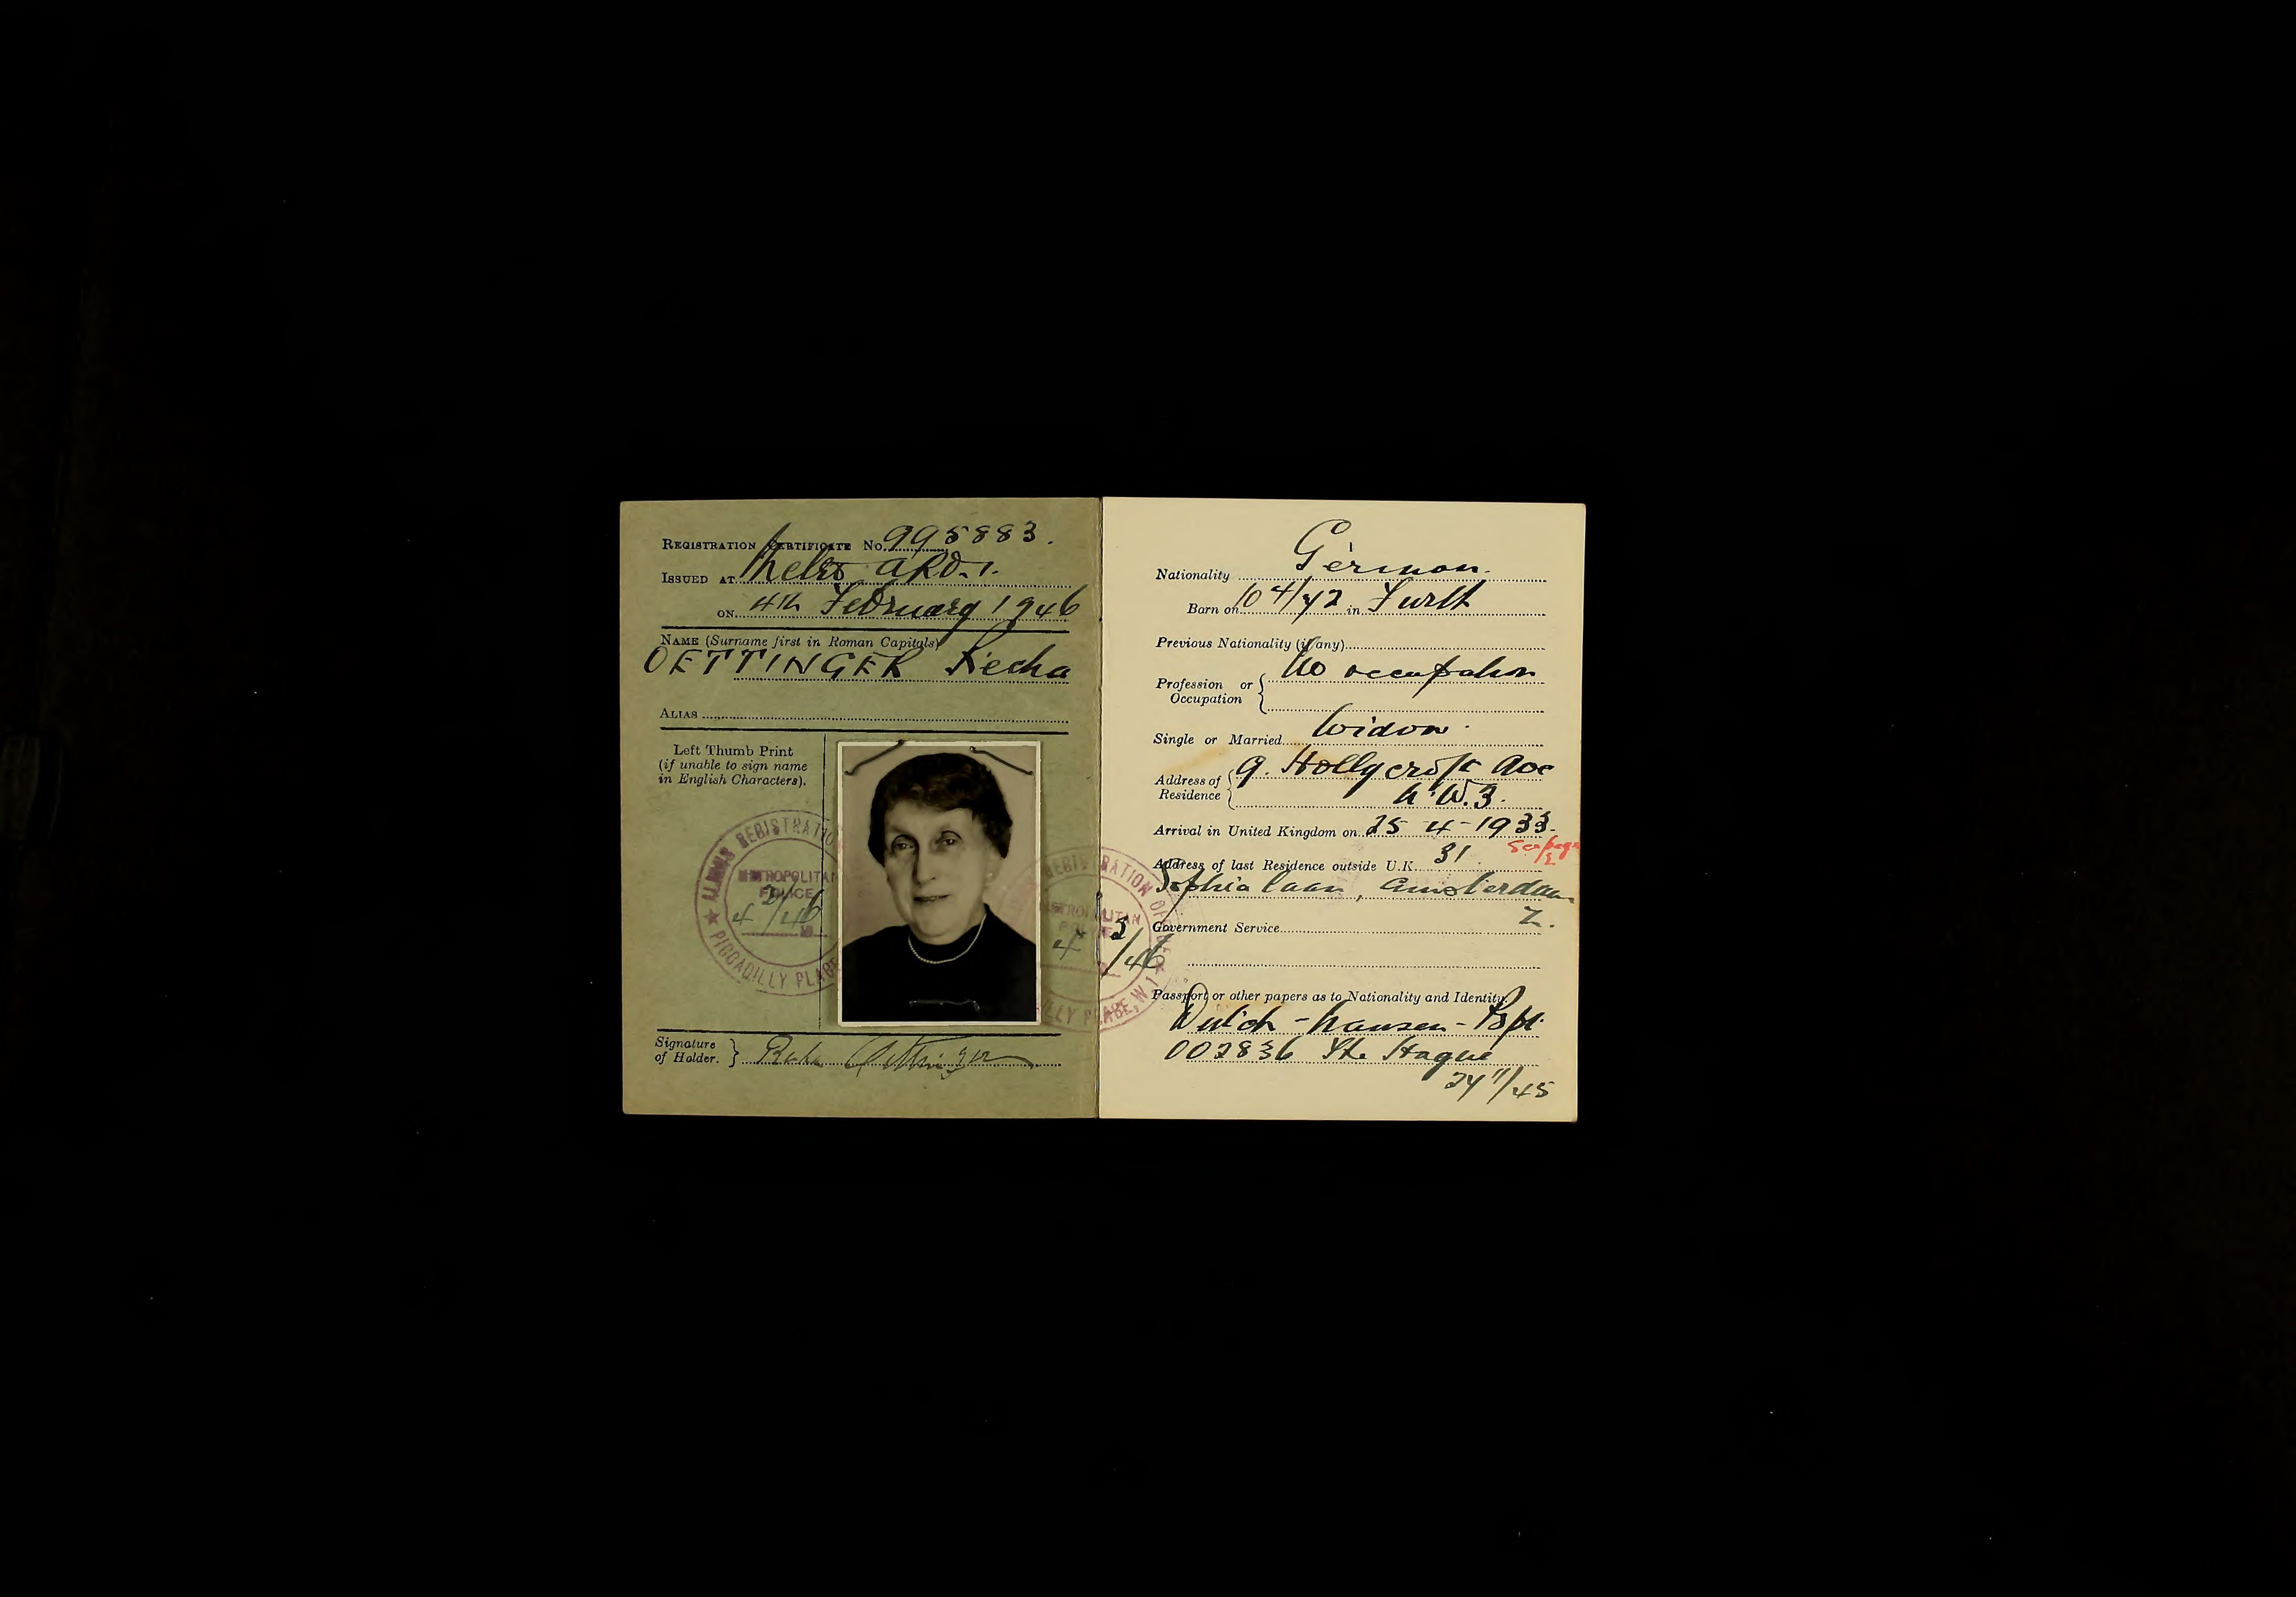 REGISTRATION CERTIFICATE No. 995883.
ISSUED AT Metro ARO. 1.
ON 4th February 1946
NAME (Surname first in Roman Capitals)
OETTINGER Recha
ALIAS
Left Thumb Print
(if unable to sign name
in English Characters).
ALIENS REGISTRATION
METROPOLITAN
POLICE
4 2/46
PICCADILLY PLACE
Signature
of Holder. } Oettinger
Nationality German.
Born on 10 4/72 in Furth
Previous Nationality (if any)
Profession or
Occupation { No occupation
Single or Married Widow.
Address of
Residence { 9. Hollycroft Ave
N.W.3.
Arrival in United Kingdom on 25-4-1933.
See page
Address of last Residence outside U.K. 31
Sophialaan, Amsterdam
Z.
Government Service
REGISTRATION OFFICE
METROPOLITAN
POLICE
4 2/46
PICCADILLY PLACE, W.1
Passport or other papers as to Nationality and Identity.
Dutch - Nansen - Ppt.
002836 The Hague
24 11/45